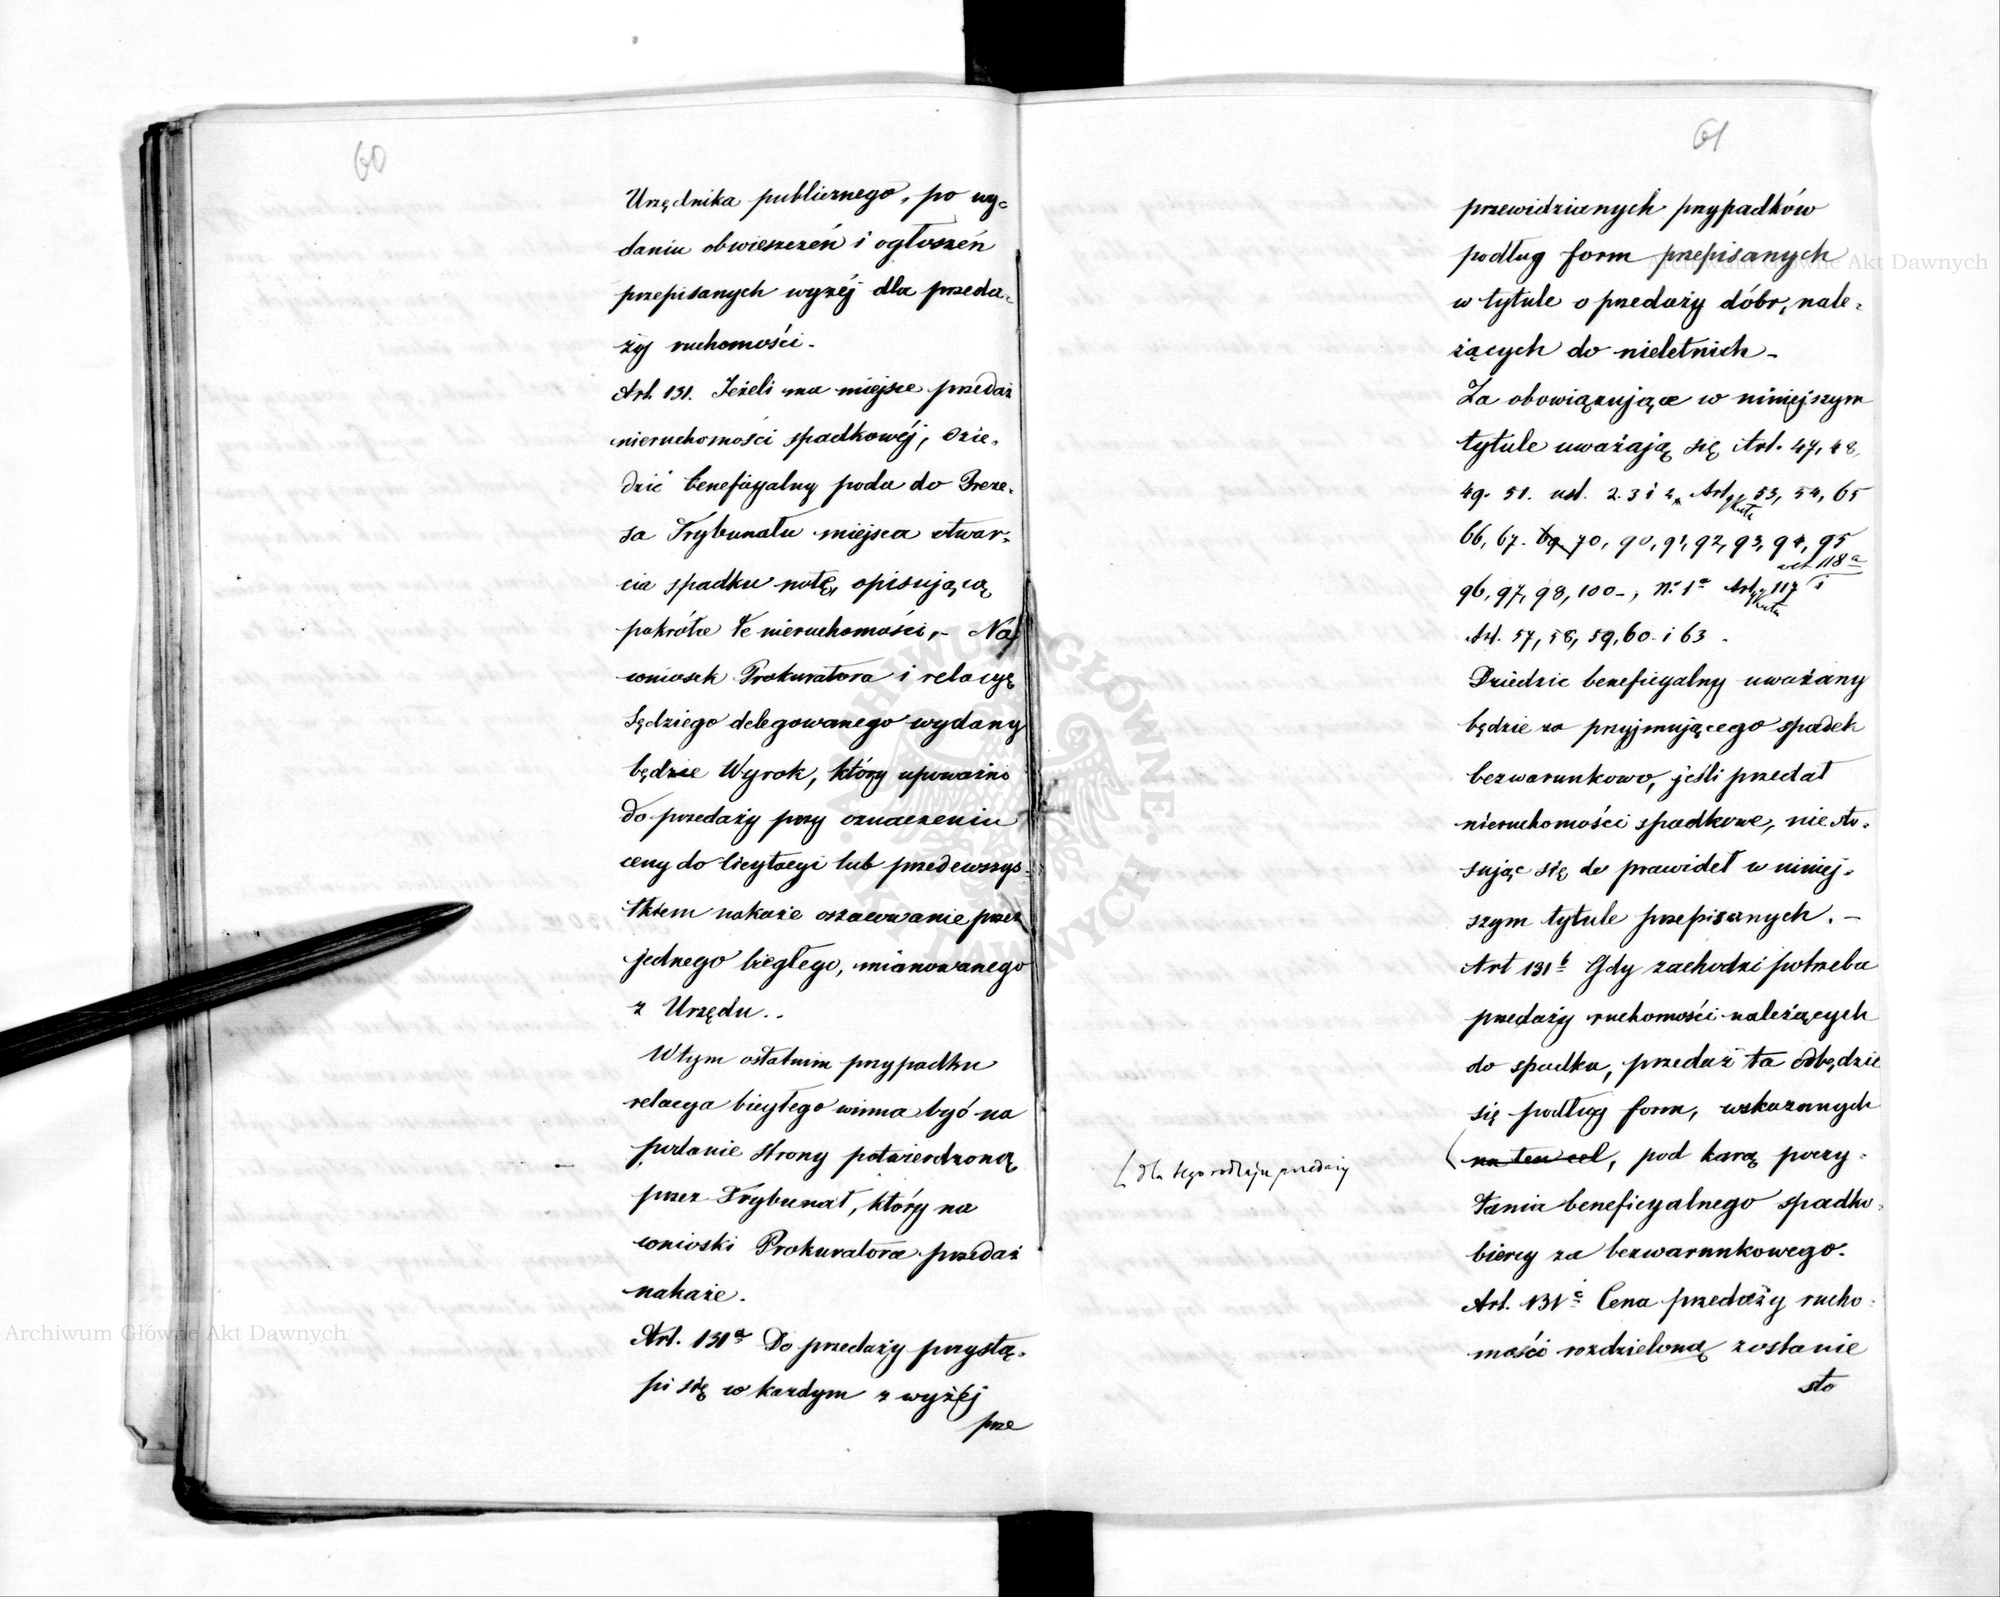 60
Urzędnika publicznego, po wy=
daniu obwieszczeń i ogłoszeń
przepisanych wyżej dla przeda=
ży ruchomości.
Art. 131. Jeżeli ma miejsce przedaż
nieruchomości spadkowéj, dzie=
dzic beneficyalny poda do Preze=
sa Trybunału miejsca otwar=
cia spadku notę, opisującą
pokrótce te nieruchomości,- Na
wniosek Prokuratora i relacyę
Sędziego delegowanego wydany
będzie Wyrok, który upoważni
do przedaży przy oznaczeniu
ceny do licytacyi lub przedewszys=
tkiem nakaże oszacowanie przez
jednego biegłego, mianowanego
z Urzędu..
W tym ostatnim przypadku
relacya biegłego winna być na
żądanie strony potwierdzoną
przez Trybunał, który na
wnioski Prokuratora przedaż
nakaże.
Art. 131ª Do przedaży przystą=
pi się w każdym z wyżej
prze
61
przewidzianych przypadków
podług form przepisanych
w tytule o przedaży dóbr, nale=
żących do nieletnich-
Za obowiązujące w niniejszym
tytule uważają się Art. 47, 48,
49. 51. ust. 2. 3 i Art. 53, 54, 65
66, 67. 70, 90, 91, 92, 93, 94, 95
art 118ª
96, 97, 98, 100-, Nº 1º Art. 117 i
Art. 57, 58, 59, 60 i 63.
Dziedzic beneficyalny uważany
będzie za przyjmującego spadek
bezwarunkowo, jeśli przedał
nieruchomości spadkowe, nie sto=
sując się do prawideł w niniej=
szym tytule przepisanych. -
Art 131b Gdy zachodzi potrzeba
przedaży ruchomości należących
do spadku, przedaż ta odbędzie
się podług form, wskazanych
na ten cel, pod karą poczy=
[dla tego rodzaju przedaży
tania beneficyalnego spadko=
biercy za bezwarunkowego.
Art. 131c Cena przedaży rucho=
mości rozdzieloną zostanie
sto
Archiwum Główne Akt Dawnych
Archiwum Główne Akt Dawnych
ARCHIWUM GŁÓWNE AKT DAWNYCH